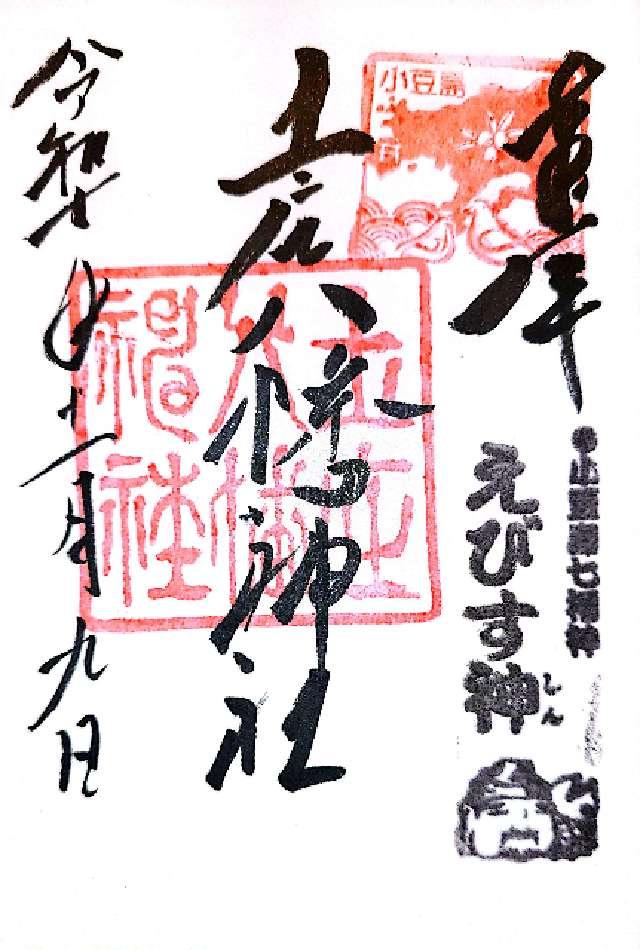 奉拝
小豆島
七福神
えびす神
しん
土庄八幡神社
土庄
八幡
神社
令和七年十一月九日